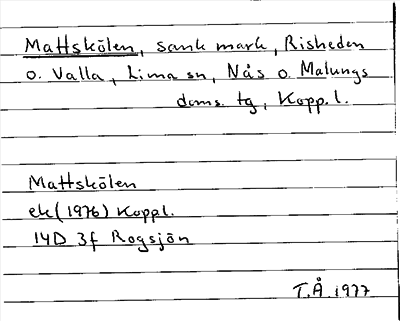 Mattskölen, sank mark, Risheden
o. Valla, Lima sn, Nås o. Malungs
doms. tg, Kopp.l.
Mattskölen
ek (1976) Koppl.
14D 3f Rogsjön
T.Å. 1977